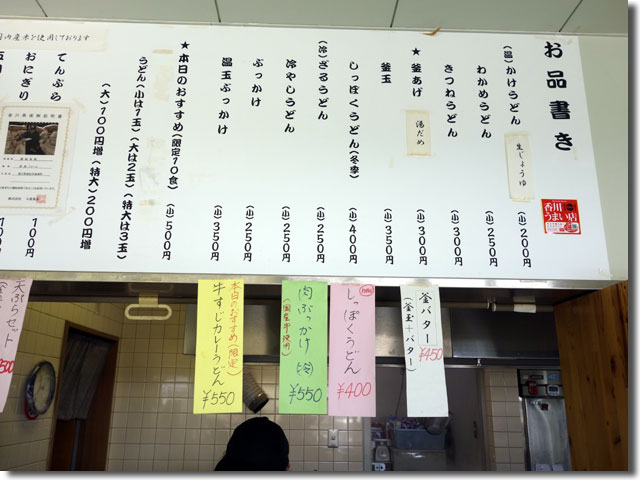 お品書き
(温)かけうどん (小)200円
生じょうゆ
わかめうどん (小)250円
きつねうどん (小)300円
★釜あげ (小)300円
湯だめ
釜玉 (小)350円
しっぽくうどん(冬季) (小)400円
(冷)ざるうどん (小)250円
冷やしうどん (小)250円
ぶっかけ (小)250円
温玉ぶっかけ (小)350円
★本日のおすすめ(限定10食) (小)500円
うどん(小は1玉)(大は2玉)(特大は3玉)
(大)100円増(特大)200円増
てんぷら 100円
おにぎり 100円
内産米を使用しております
香川
うまい店
釜バター
(釜玉+バター)
¥450
しっぽくうどん
¥400
肉ぶっかけ
(国産牛使用)
¥550
本日のおすすめ(限定)
牛すじカレーうどん
¥550
天ぷらセット